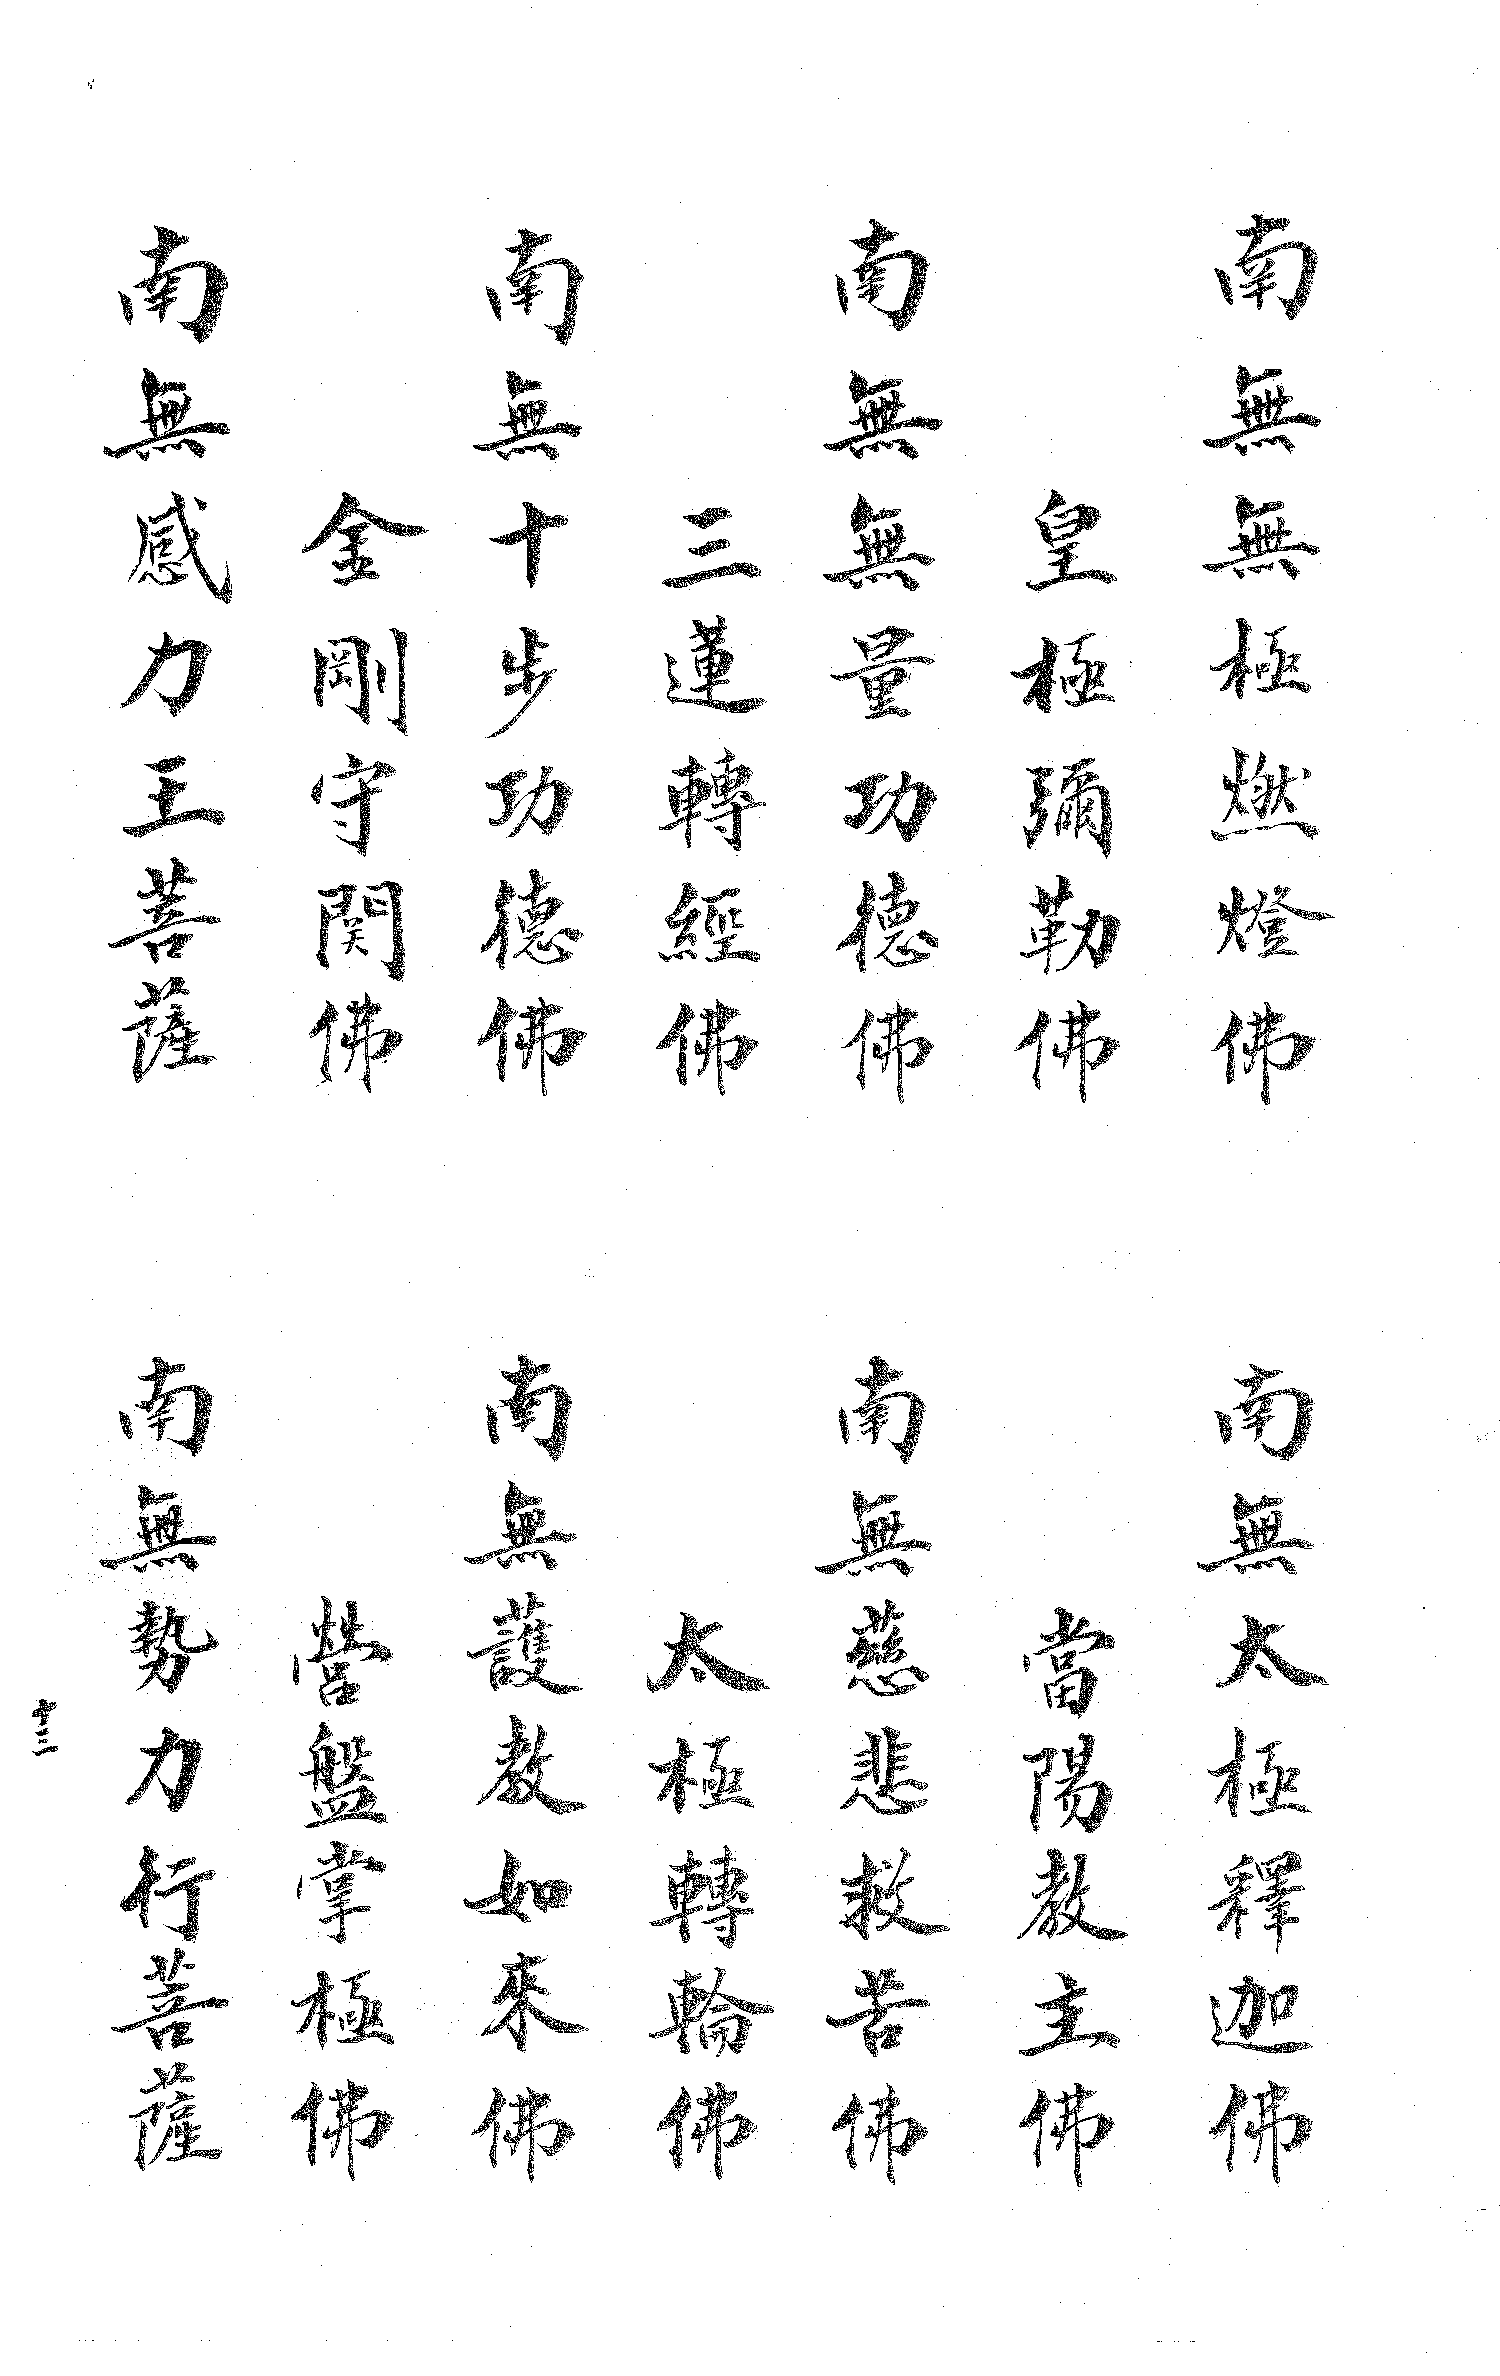 南無無極燃燈佛
南無太極釋迦佛
皇極彌勒佛
當陽教主佛
南無無量功德佛
南無慈悲救苦佛
三蓮轉經佛
太極轉輪佛
南無十步功德佛
南無護教如來佛
金剛守関佛
營盤掌極佛
南無感力王菩薩
南無勢力行菩薩
十三